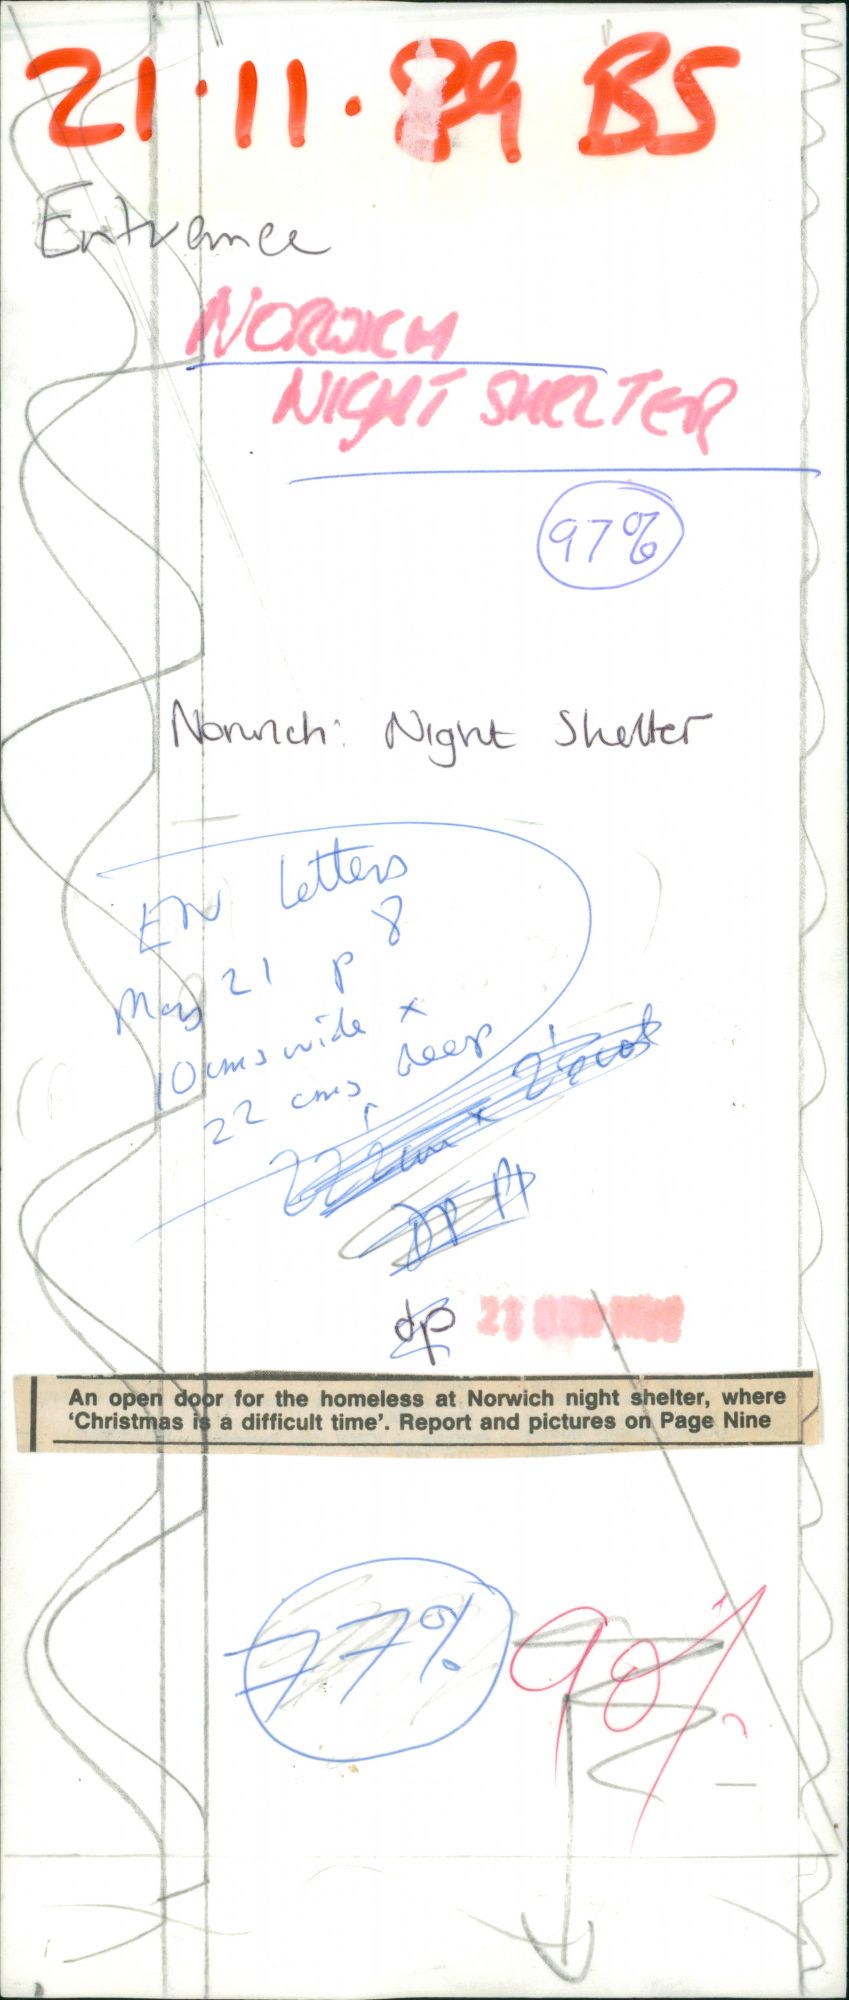 21.11.89 BS
Entrance
NORWICH
NIGHT SHELTER
97%
Norwich: Night Shelter
EN letters
May 21 p 8
10cms wide x
22 cms deep
dp
21
An open door for the homeless at Norwich night shelter, where
'Christmas is a difficult time'. Report and pictures on Page Nine
77%
90%